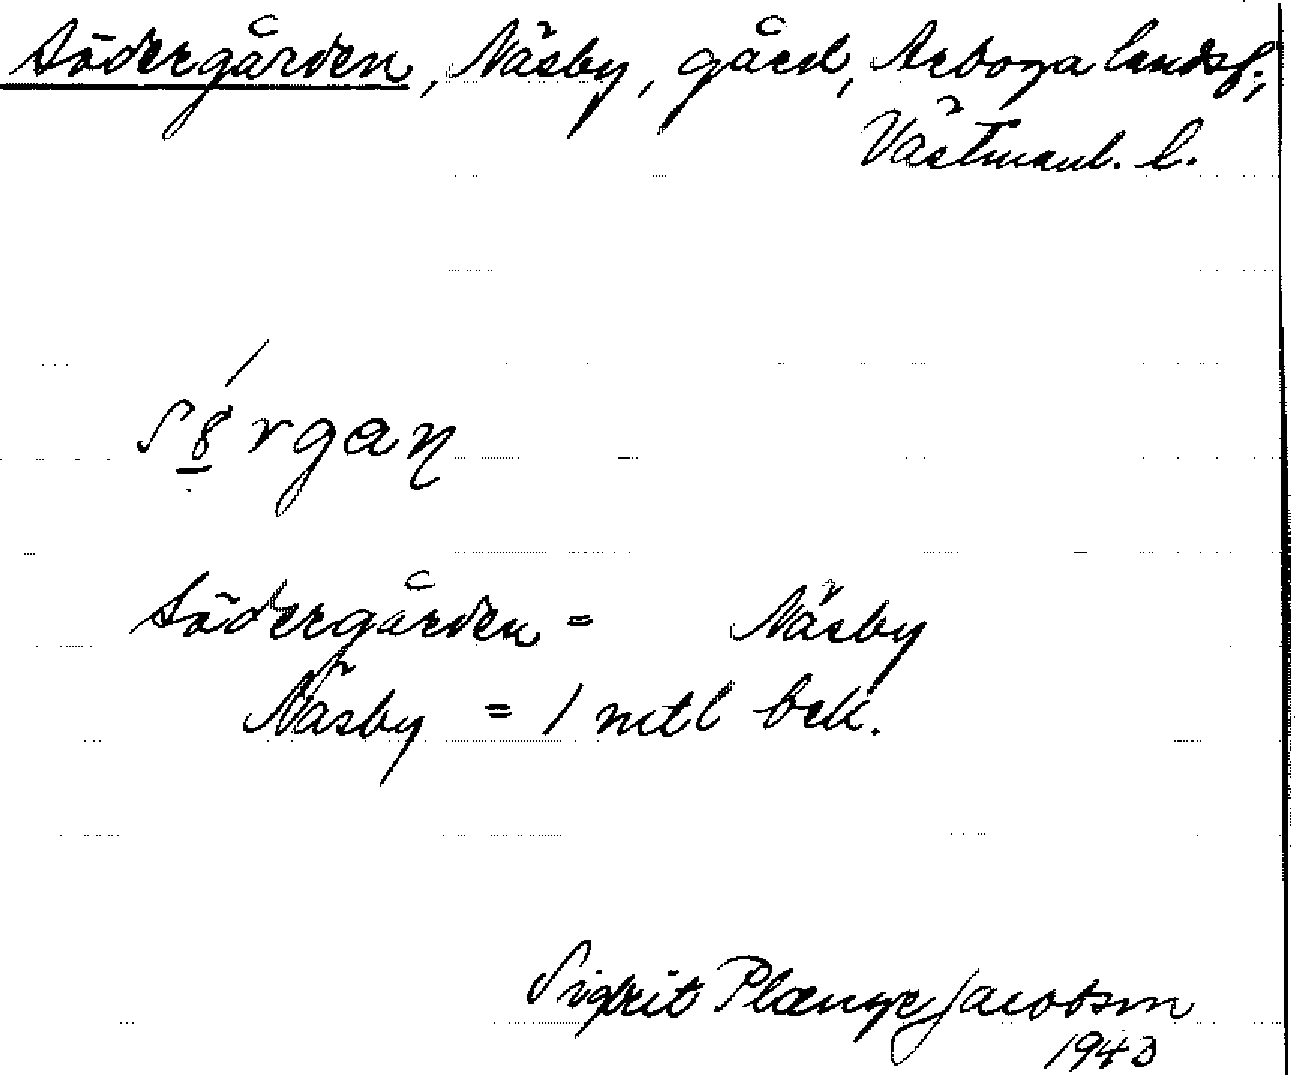 Södergården, Näsby, gård, Arboga landsf.,
Västmanl. l.
Södergården = Näsby
Näsby = 1 mtl bek.
Sigbrit Plænge Jacobson
1943